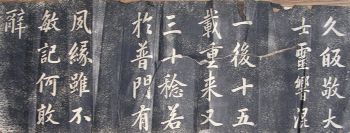 久皈敬大
士靈響混
一後十五
載重来又
三十稔若
於普門有
夙緣雖不
敏記何敢
辭